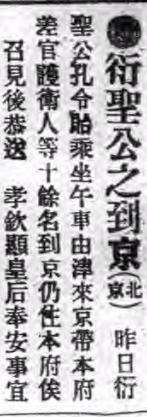 衍聖公之到京(北京) 昨日衍
聖公孔令貽乘坐午車由津來京帶本府
差官護衛人等十餘名到京仍住本府俟
召見後恭送 孝欽顯皇后奉安事宜